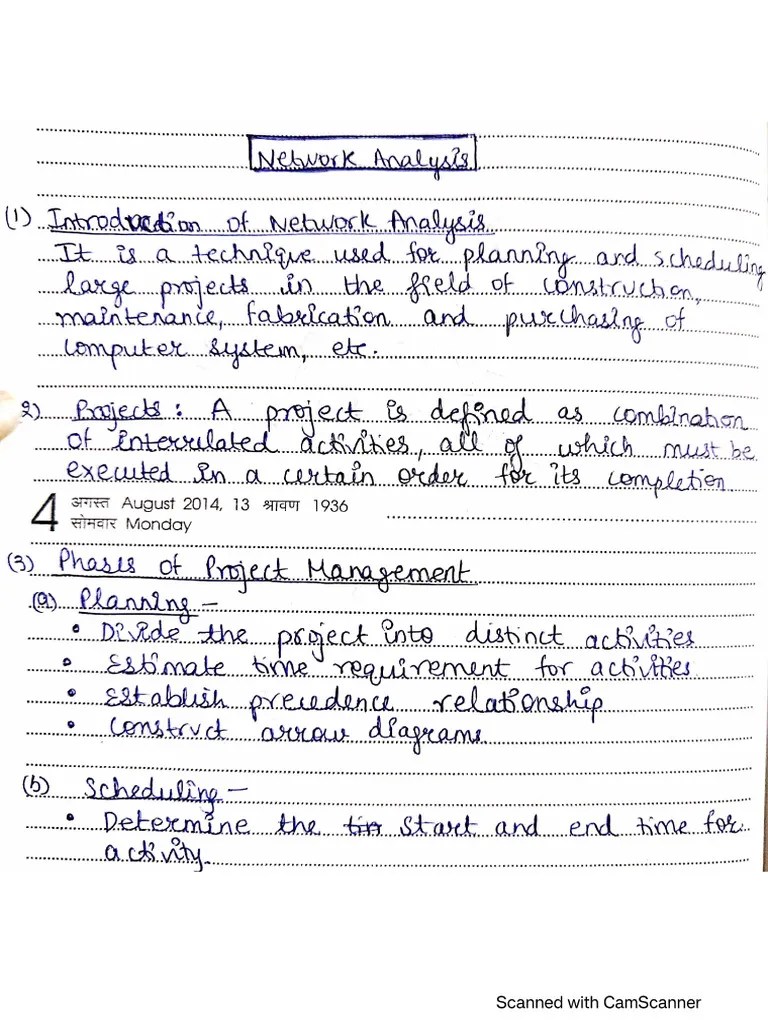 Network Analysis
(1) Introduction of Network Analysis
It is a technique used for planning and scheduling
large projects in the field of construction,
maintenance, fabrication and purchasing of
computer system, etc.
2) Projects: A project is defined as combination
of interrulated activities, all of which must be
executed in a certain order for its completion
4 अगस्त August 2014, 13 श्रावण 1936
सोमवार Monday
(3) Phases of Project Management
(a) Planning –
• Divide the project into distinct activities
• Estimate time requirement for activities
• Establish precedence relationship
• Construct arrow diagrams
(b) Scheduling –
• Determine the tim start and end time for
activity
Scanned with CamScanner